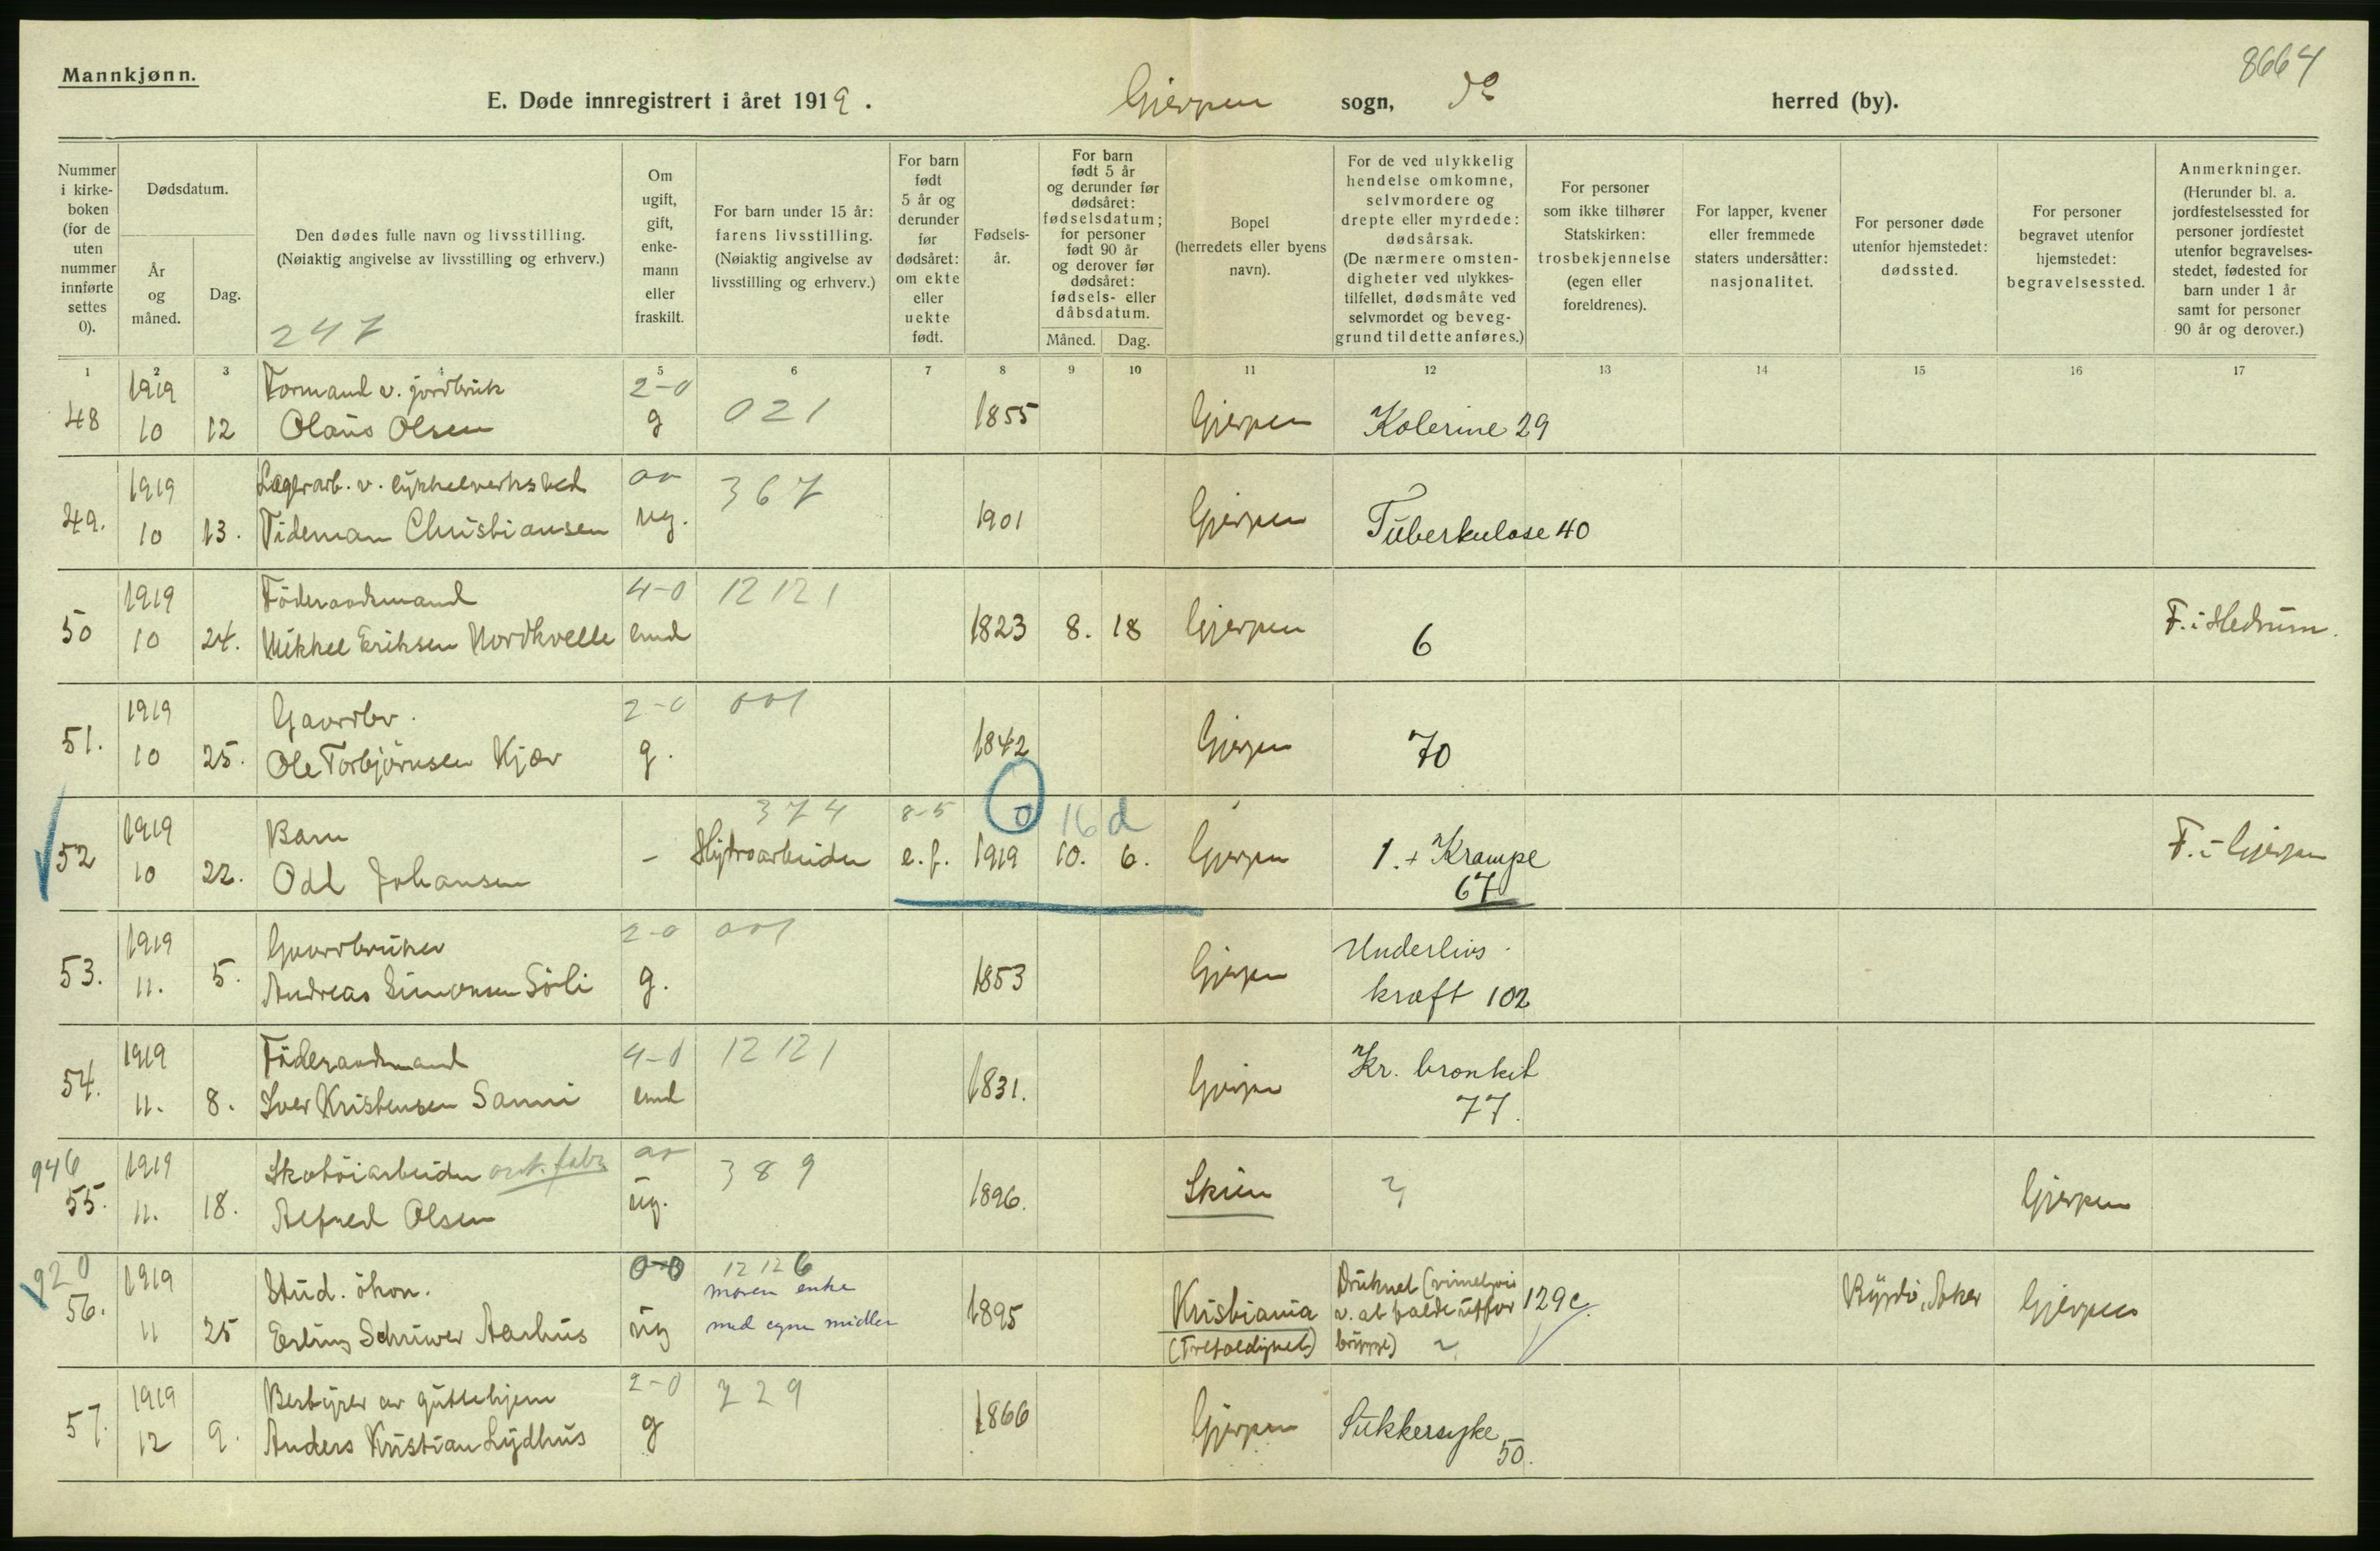 8664
Mannkjønn.
E. Døde innregistrert i året 1919. Gjerpen sogn, do herred (by).
Nummer i kirke-boken (for de uten nummer innførte settes 0).
Dødsdatum.
År og måned.
Dag.
Den dødes fulle navn og livsstilling.
(Nøiaktig angivelse av livsstilling og erhverv.)
247
Om ugift, gift, enke-mann eller fraskilt.
For barn under 15 år: farens livsstilling. (Nøiaktig angivelse av livsstilling og erhverv.)
For barn født 5 år og derunder før dødsåret: om ekte eller uekte født.
Fødsels-år.
For barn født 5 år og derunder før dødsåret: fødselsdatum; for personer født 90 år og derover før dødsåret: fødsels- eller dåbsdatum.
Måned. Dag.
Bopel (herredets eller byens navn).
For de ved ulykkelig hendelse omkomne, selvmordere og drepte eller myrdede: dødsårsak. (De nærmere omsten-digheter ved ulykkes-tilfellet, dødsmåte ved selvmordet og beveg-grund til dette anføres.)
For personer som ikke tilhører Statskirken: trosbekjennelse (egen eller foreldrenes).
For lapper, kvener eller fremmede staters undersåtter: nasjonalitet.
For personer døde utenfor hjemstedet: dødssted.
For personer begravet utenfor hjemstedet: begravelsessted.
Anmerkninger. (Herunder bl. a. jordfestelsessted for personer jordfestet utenfor begravelses-stedet, fødested for barn under 1 år samt for personer 90 år og derover.)
1 2 3 4 5 6 7 8 9 10 11 12 13 14 15 16 17
1919 Formand v. jordbruk 2-0
48 10 12 Olaus Olsen g 021 1855 Gjerpen Kolerine 29
1919 Lagerarb. v. cykkelverksted 00 367
49. 10 13. Tideman Christiansen ug. 1901 Gjerpen Tuberkulose 40
1919 Föderaadsmand 4-0 12121
50 10 24. Mikkel Eriksen Nordkvelle emd 1823 8. 18 Gjerpen 6 F. i Hedrum.
1919 Gaardbr. 2-0 001
51. 10 25. Ole Torbjörnsen Kjær g. 1842 Gjerpen 70
1919 Barn 374 8-5 0 16 d
52 10 22. Odd Johansen - Hydroarbeider e.f. 1919 10. 6. Gjerpen 1. + Krampe 67 F. i Gjerpen
1919 Gaardbruker 2-0 001 Underlivs
53. 11. 5. Andreas Simonsen Sörli g. 1853 Gjerpen kræft 102
1919 Föderaadsmand 4-0 12121 Kr. bronkit
54. 11. 8. Iver Kristensen Sanni emd 1831. Gjerpen 77.
946 1919 Skotöiarbeider ant. fabr 389
55. 11. 18. Alfred Olsen ug. 1896. Skien ? Gjerpen
920 1919 Stud. ökon. 0-0 12126 moren enke
56. 11 25 Erling Schriwer Aarhus ug med egne midler 1895 Kristiania (Trefoldighet) Druknet (rimeligvis v. at falde utfor brygge) 129 c. Bygdö, Aker Gjerpen
1919 Bestyrer av guttehjem 2-0 729
57. 12 9. Anders Kristian Lydhus g 1866 Gjerpen Sukkersyke 50.